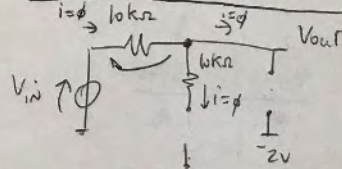 i=ø 10kΩ i=ø
Vout
Vin 10kΩ ↓i=ø
-2V